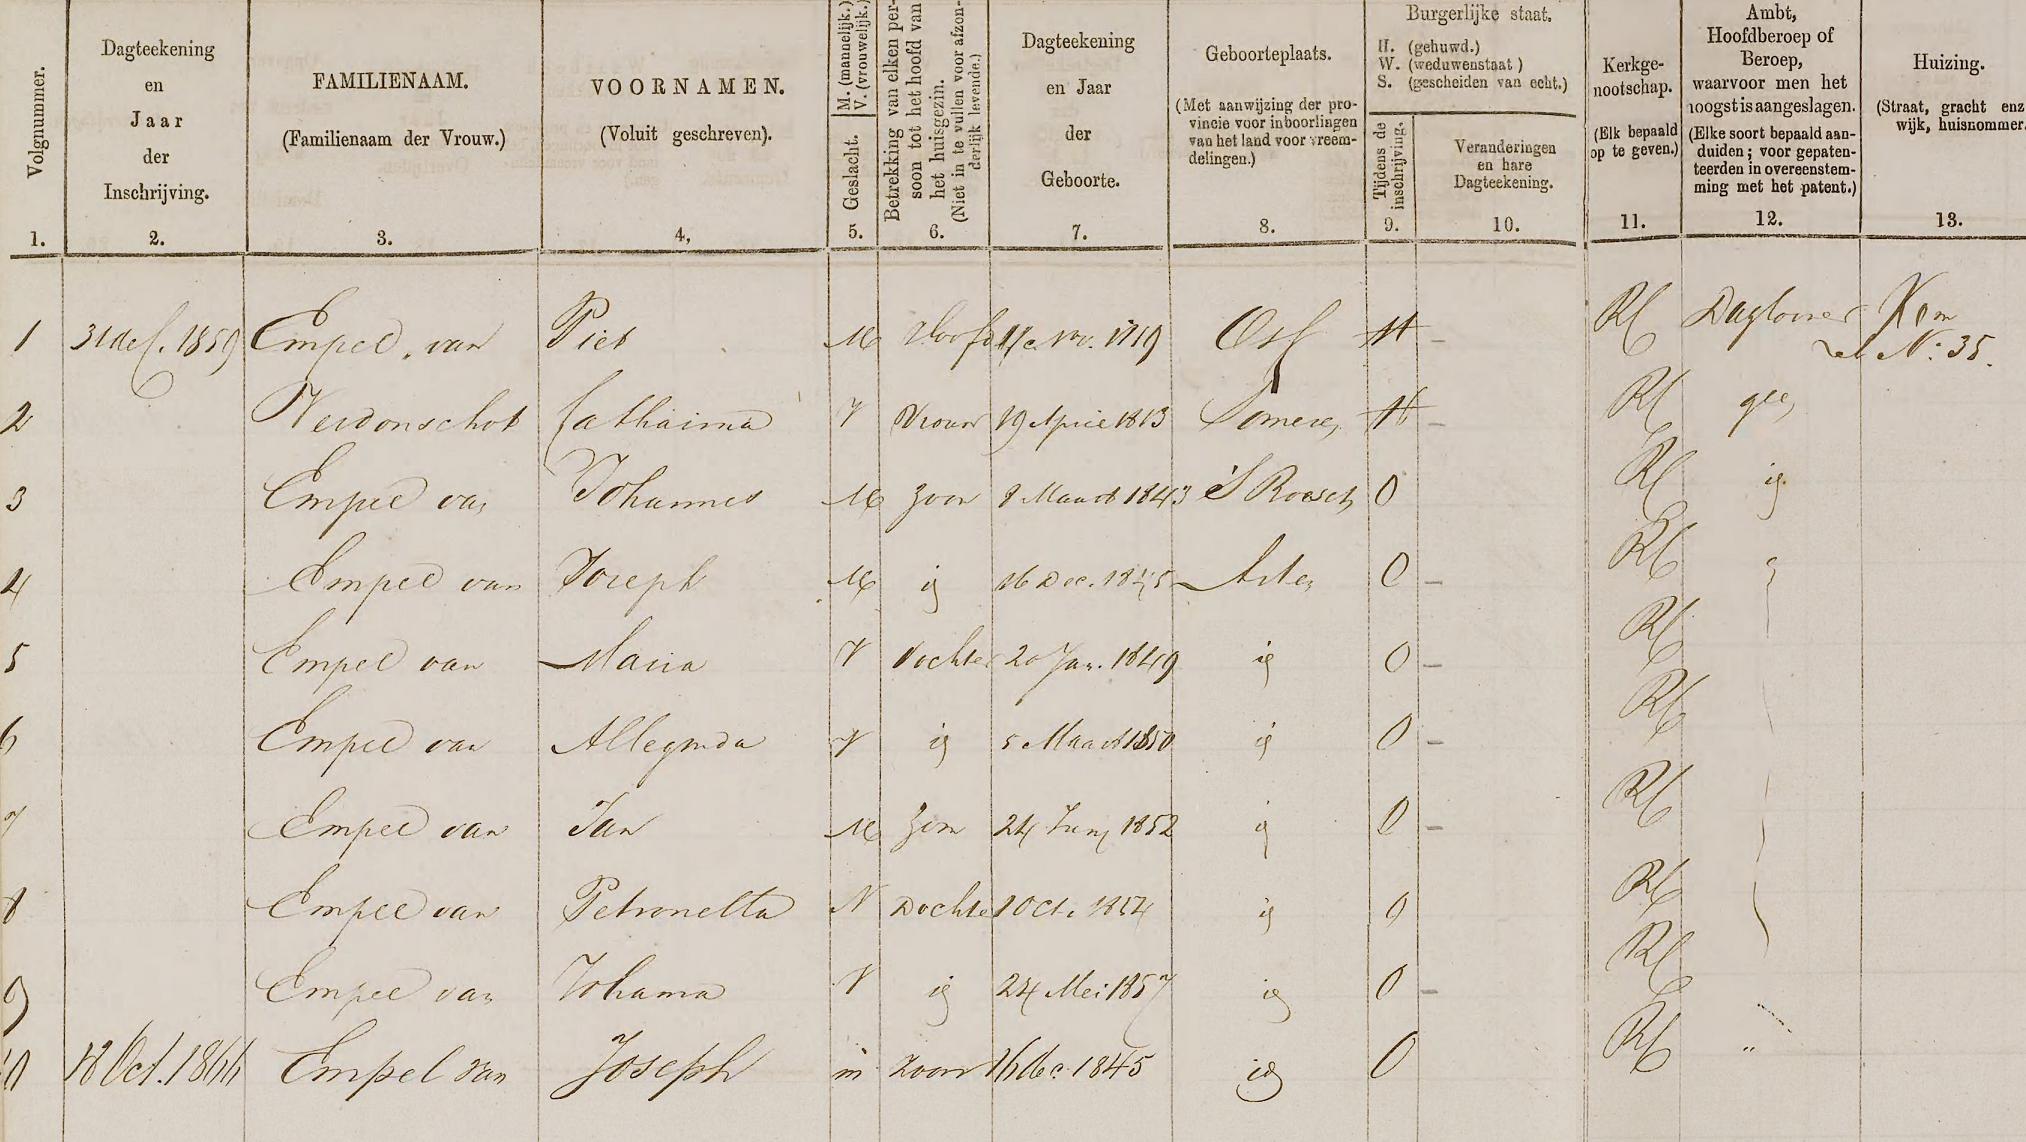 Volgnummer.
1.
Dagteekening
en
Jaar
der
Inschrijving.
2.
FAMILIENAAM.
(Familienaam der Vrouw.)
3.
VOORNAMEN.
(Voluit geschreven).
4,
M. (mannelijk.)
V. (vrouwelijk.)
Geslacht.
5.
Betrekking van elken per-
soon tot het hoofd van
het huisgezin.
(Niet in te vullen voor afzon-
derlijk levende.)
6.
Dagteekening
en Jaar
der
Geboorte.
7.
Geboorteplaats.
(Met aanwijzing der pro-
vincie voor inboorlingen
van het land voor vreem-
delingen.)
8.
Burgerlijke staat.
H. (gehuwd.)
W. (weduwenstaat)
S. (gescheiden van echt.)
Tijdens de
inschrijving.
9.
Veranderingen
en hare
Dagteekening.
10.
Kerkge-
nootschap.
(Elk bepaald
op te geven.)
11.
Ambt,
Hoofdberoep of
Beroep,
waarvoor men het
hoogst is aangeslagen.
(Elke soort bepaald aan-
duiden; voor gepaten-
teerden in overeenstem-
ming met het patent.)
12.
Huizing.
(Straat, gracht enz
wijk, huisnommer.
13.
1 31 dec. 1859 Empel. van Piet M Hoofd Nov. 1819 H – RC Daglooner
No: 35.
2 Verdonschot Catharina V Vrouw 19 April 1813 Someren H – RC geen
3 Empel van Johannes M zoon 8 Maart 1843 O RC ig
4 Empel van Joseph M ig 16 Dec. 1845 Asten O – RC
5 Empel van Maria V Dochter 20 Jan. 1849 ig O – RC
6 Empel van Allegonda V ig 5 Maart 1850 ig O – RC
7 Empel van Jan M Zoon 24 Junij 1852 ig O – RC
8 Empel van Petronella V Dochter 1 Oct. 1854 ig O RC
9 Empel van Johanna V ig 24 Mei 1857 ig O – RC
10 18 Oct. 1866 Empel van Joseph m zoon 16 dec 1845 ig O RC "